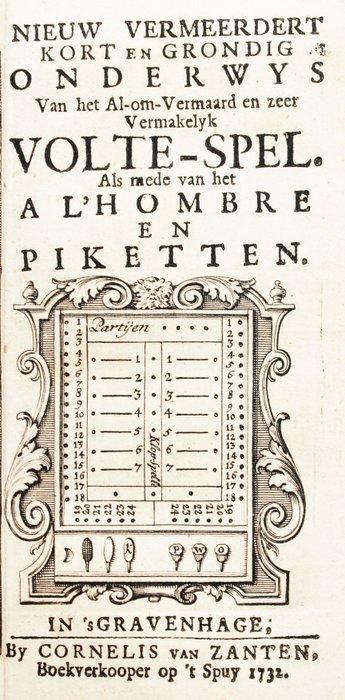 NIEUW VERMEERDERT
KORT EN GRONDIG
ONDERWYS
Van het Al-om-Vermaard en zeer
Vermakelyk
VOLTE-SPEL.
Als mede van het
A L'HOMBRE
EN
PIKETTEN.
Partijen
1 1
2 2
3 3
4 4
5 5
6 6
7 7
8 8
9 9
10 10
11 11
12 12
13 13
14 14
15 15
16 16
17 17
18 18
1 1
2 2
3 3
4 4
5 5
6 6
7 7
19 20 21 22 23 24 24 23 22 21 20 19
P W O
IN 'sGRAVENHAGE,
By CORNELIS VAN ZANTEN,
Boekverkooper op 't Spuy 1732.